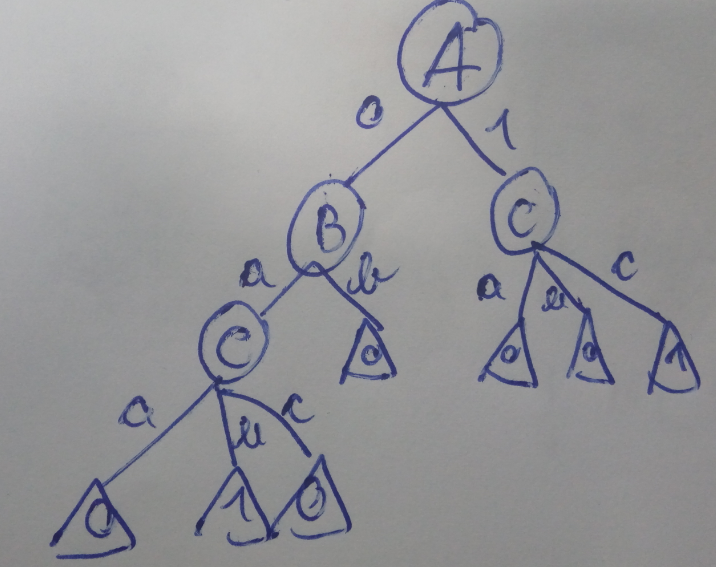 A
0 1
B C
a b a в c
C 0 0 0 1
a в c
0 1 0